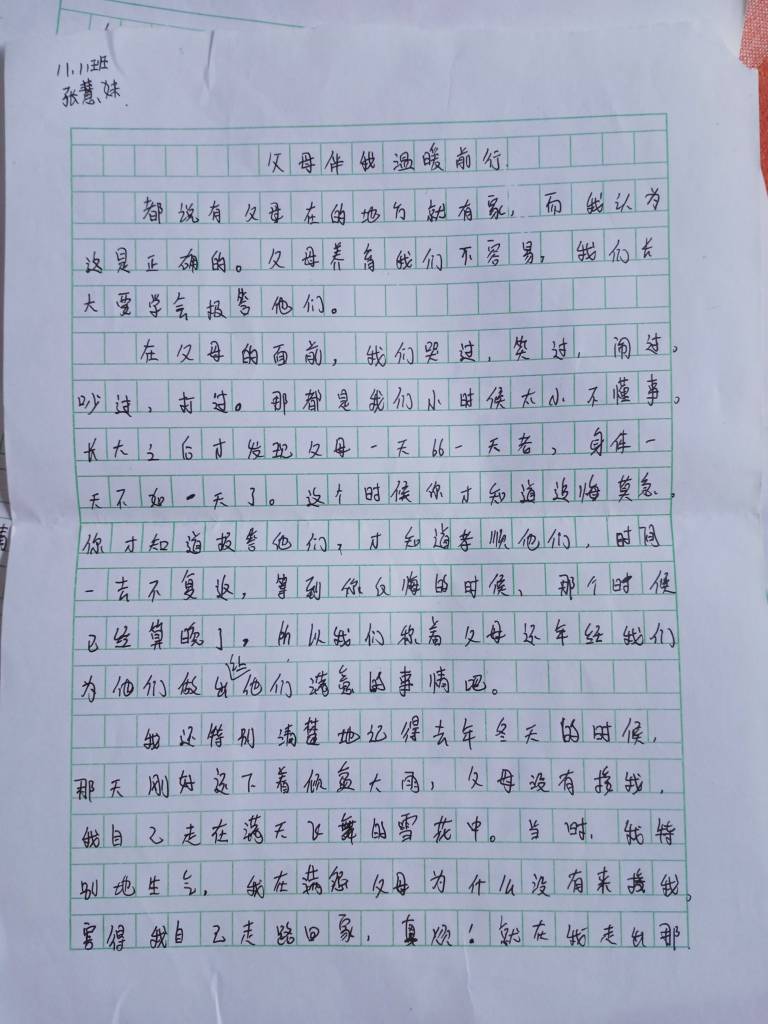 11.11班
张慧妹
父母伴我温暖前行
都说有父母在的地方就有家，而我认为
这是正确的。父母养育我们不容易，我们长
大要学会报答他们。
在父母的面前，我们哭过，笑过，闹过，
吵过，打过。那都是我们小时候太小不懂事。
长大之后才发现父母一天比一天老，身体一
天不如一天了。这个时候你才知道追悔莫急，
你才知道报答他们，才知道孝顺他们，时间
一去不复返，等到你反悔的时候，那个时候
已经算晚了，所以我们称着父母还年经我们
为他们做出些他们满意的事情吧。
我还特别清楚地记得去年冬天的时候，
那天刚好还下着倾盆大雨，父母没有接我，
我自己走在满天飞舞的雪花中。当时，我特
别地生气，我在满怨父母为什么没有来接我，
害得我自己走路回家，真烦！就在我走出那